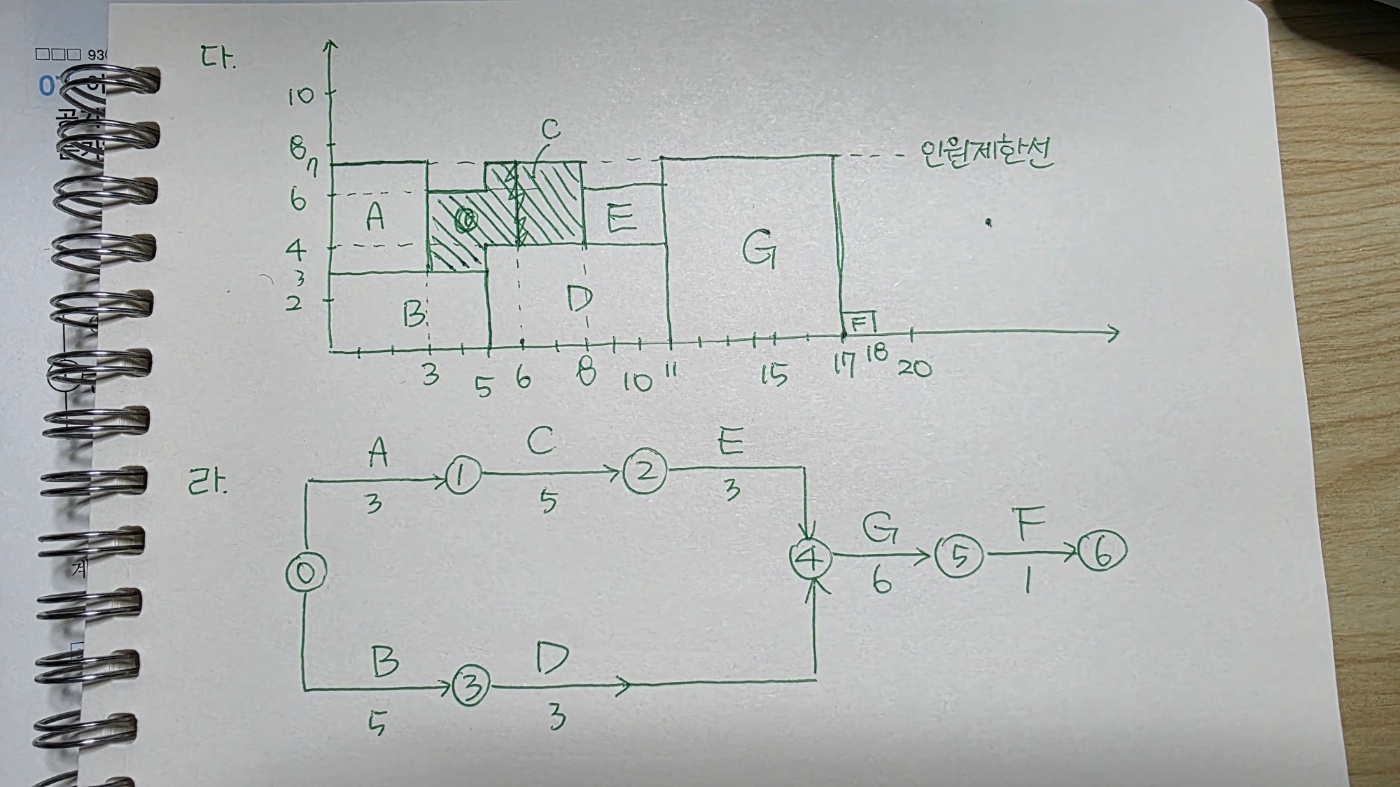 다.
10
8
7
6
4
3
2
A
B
C
D
E
G
F
인원제한선
3 5 6 8 10 11 15 17 18 20
라.
A C E
① ②
3 5 3
G F
⓪ ④ ⑤ ⑥
6 1
B D
③
5 3
930
0
계